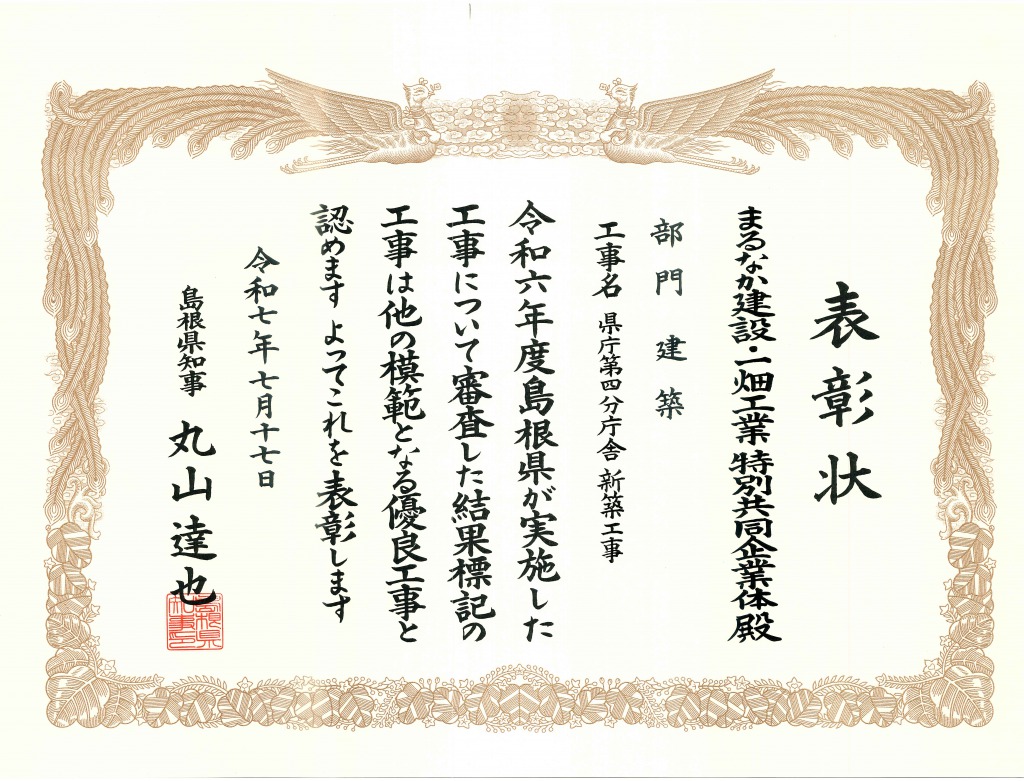 表彰状
まるなか建設・一畑工業 特別共同企業体 殿
部門 建築
工事名 県庁第四分庁舎 新築工事
令和六年度島根県が実施した
工事について審査した結果標記の
工事は他の模範となる優良工事と
認めます よってこれを表彰します
令和七年七月十七日
島根県知事 丸山達也
島根県知事之印